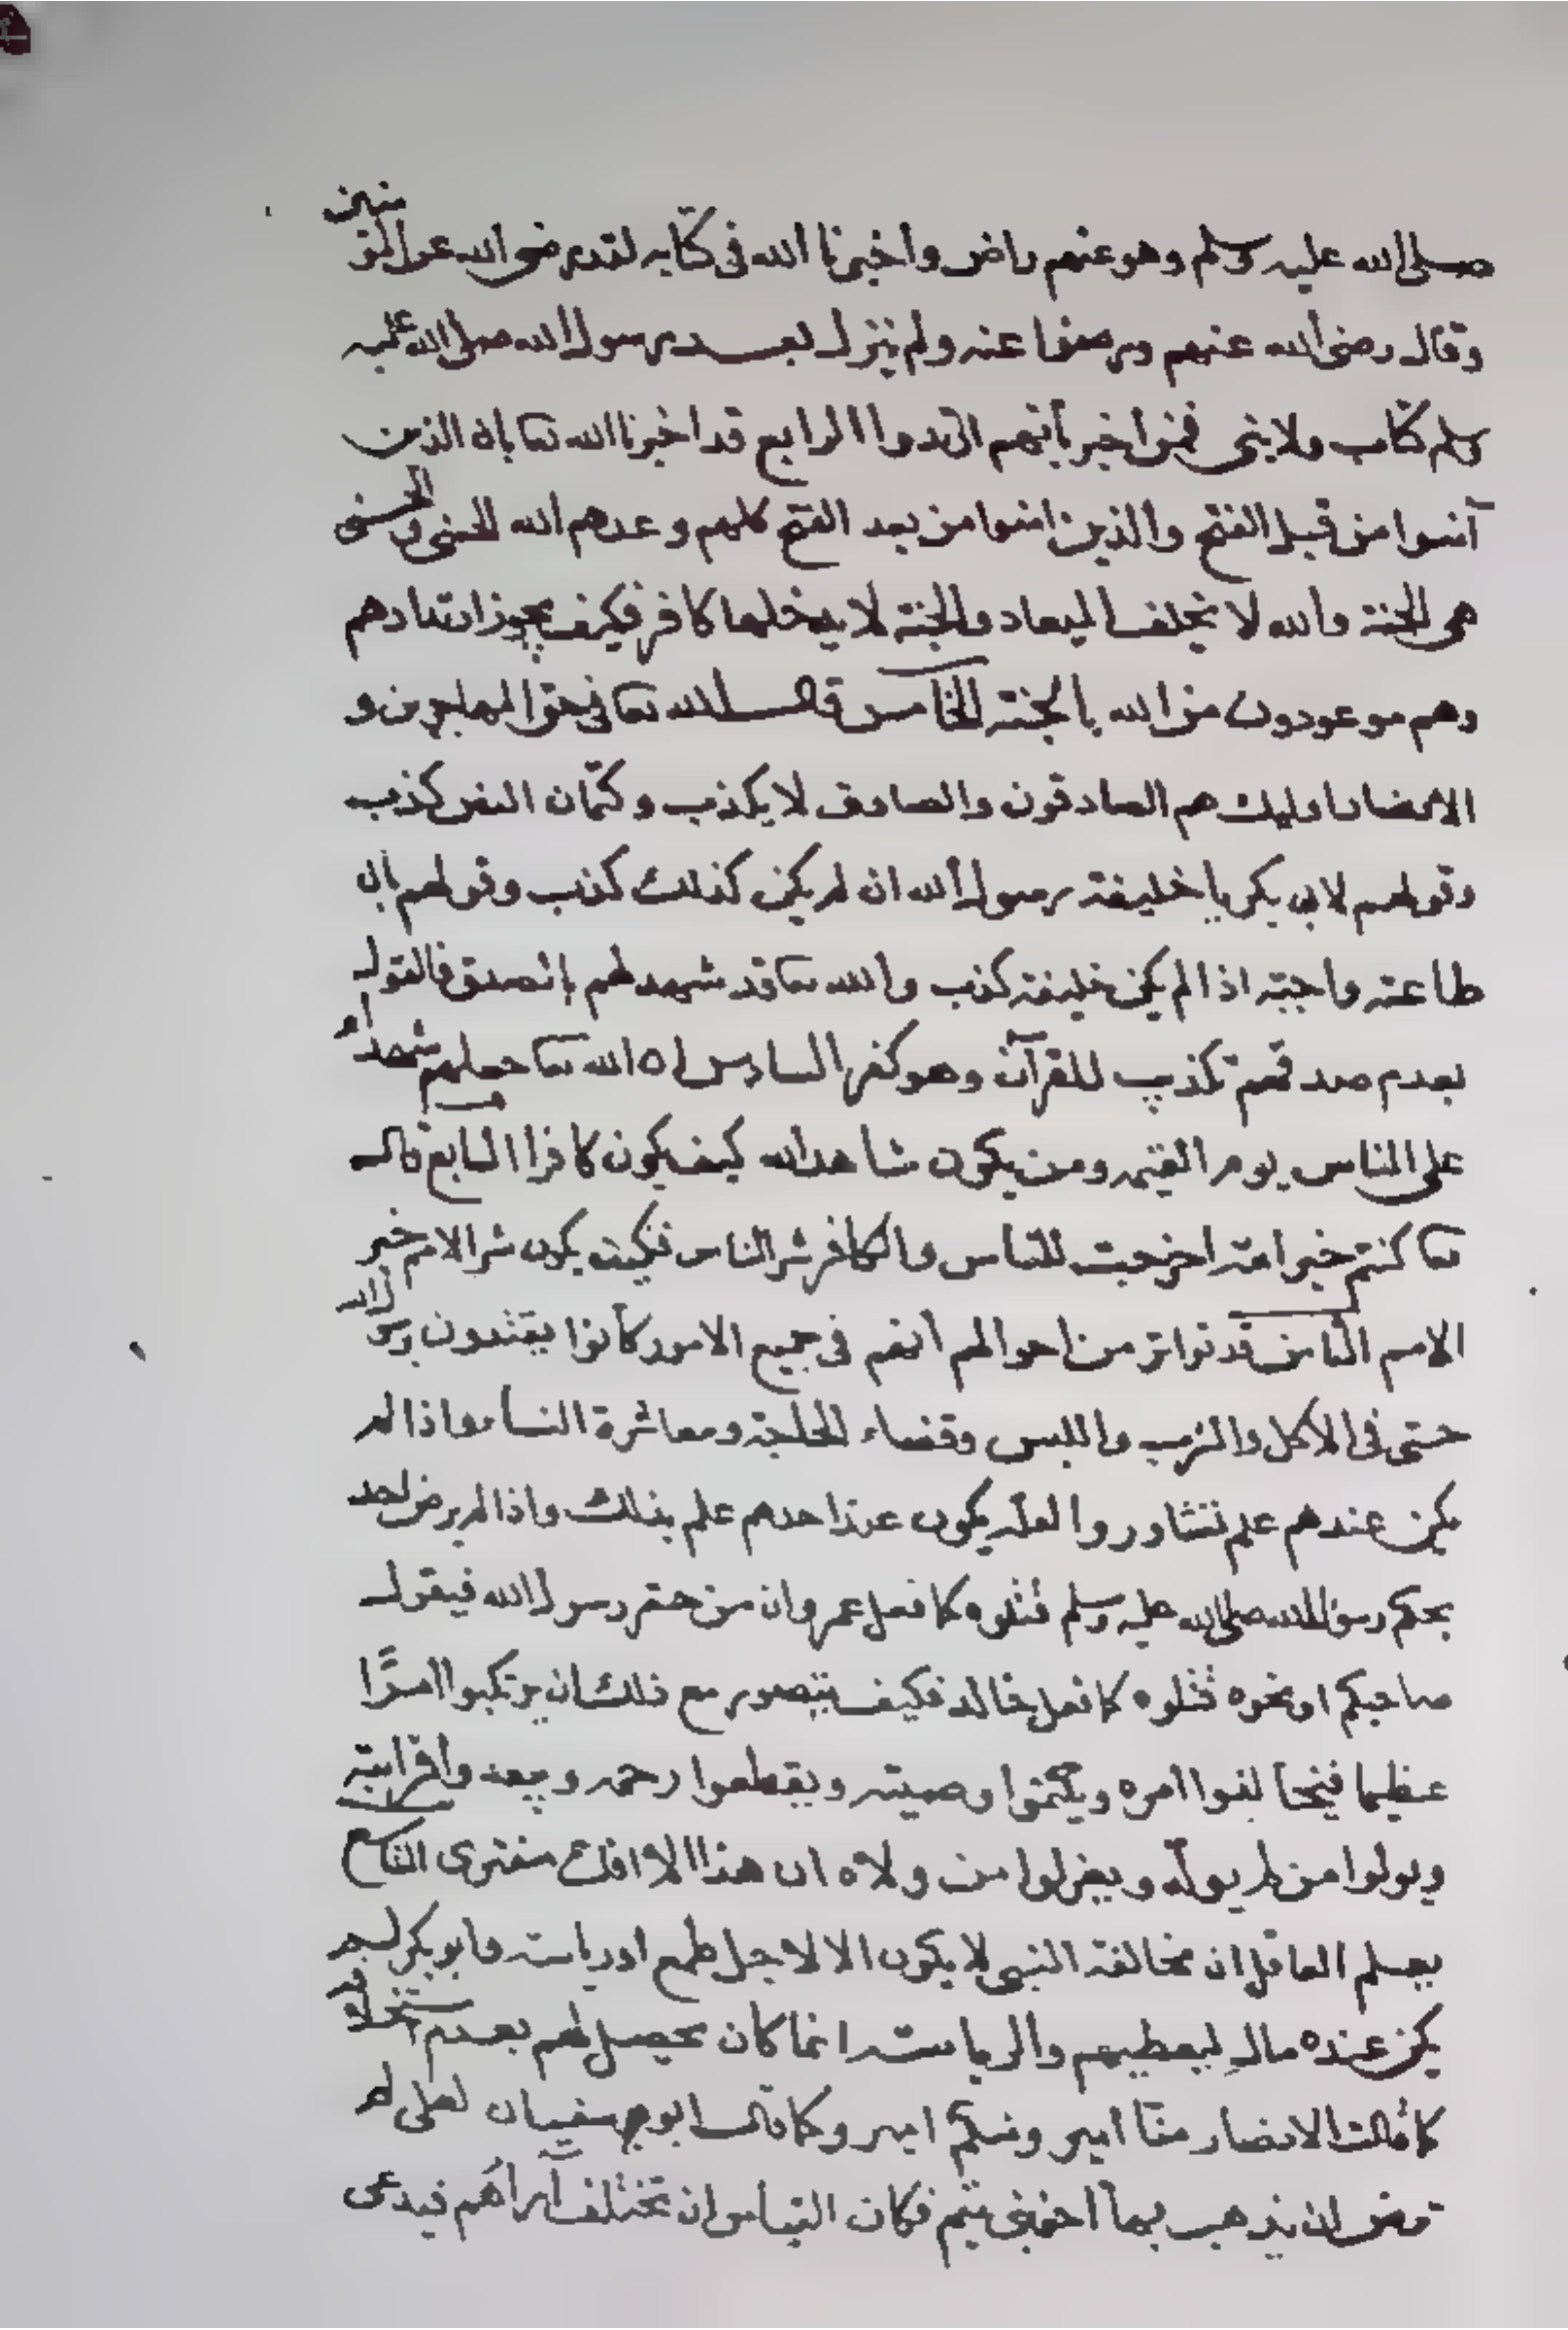 صلى الله عليه وسلم وهو عنهم راض واخبرنا الله فى كتابه لقد رضى الله عن المؤمنين
وقال رضى الله عنهم ورضوا عنه ولم ينزل بعد رسول الله صلى الله عليه
وسلم كتاب ولا نبى فمن اخبر بأنهم ارتدوا الرابع قد اخبرنا الله تعا بان الذين
آمنوا من قبل الفتح والذين امنوا من بعد الفتح كلهم وعدهم الله الحسنى والحسنى
هى الجنة والله لا يخلف الميعاد والجنة لا يدخلها كافر فكيف يجوز ارتدادهم
وهم موعودون من الله بالجنة الخامس قال الله تعا فى حق المهاجرين و
الانصار اوليك هم الصادقون والصادق لا يكذب وكتمان النص كذب
وقولهم لابى بكر يا خليفة رسول الله ان لم يكن كذلك كذب وقولهم بان
طاعته واجبة اذا لم يكن خليفة كذب والله تعا قد شهد لهم بالصدق فالقول
بعدم صدقهم تكذيب للقرآن وهو كفر السادس ان الله تعا جعلهم شهداء
على الناس يوم القيمه ومن يكون شاهد الله كيف يكون كافرا السابع قال
تعا كنتم خير امة اخرجت للناس والكافر شر الناس فكيف يكون شر الامم خير
الامم الثامن قد تواتر من احوالهم أنهم فى جميع الامور كانوا يقتدون برسول الله
حتى فى الاكل والشرب واللبس وقضاء الحاجة ومعاشرة النساء واذا لم
يكن عندهم علم تشاوروا لعله يكون عند احدهم علم بذلك واذا لم يرض احد
بحكم رسول الله صلى الله عليه وسلم قتلوه كما فعل عمر وان من حقر رسول الله فيقول
صاحبكم او نحوه قتلوه كما فعل خالد فكيف يتصور مع ذلك ان يرتكبوا امرًا
عظيما فيخالفوا امره ويكتموا وصيته ويقطعوا رحمه واقرابته
ويولوا من لم يوله ويعزلوا من ولاه ان هذا الا افك مفترى التاسع
يعلم العاقل ان مخالفة النبى لا يكون الا لاجل طمع او رياسة وابو بكر لم
يكن عنده مال ليعطيهم والرياسة انما كان يحصل لهم بعدم استخلافه
كما قالت الانصار منا أمير ومنكم امير وكما قال ابو سفيان لعلى لم
ترض ان يذهب بها احد بنى تيم فكان القياس ان تختلف آراؤهم فيدعى